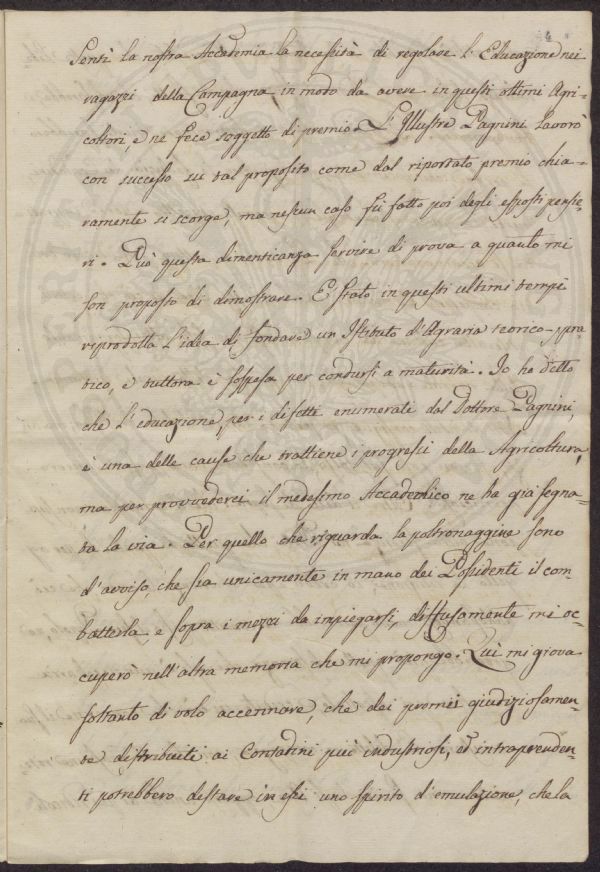 Sentì la nostra Accademia la necessità di regolare l'Educazione nei
ragazzi della Campagna in modo da avere in questi ottimi Agri=
coltori e ne fece soggetto di premio. L'Illustre Pagnini lavorò
con successo su tal proposito come dal riportato premio chia=
ramente si scorge, ma nessun caso fù fatto poi degli esposti pensie=
ri. Può questa dimenticanza servire di prova a quanto mi
son proposto di dimostrare. È stato in questi ultimi tempi
riprodotta l'idea di fondare un Istituto d'Agraria teorico-pra
tico, e tuttora è sospesa per condursi a maturità. Io ho detto
che l'educazione, per i difetti enumerati dal Dottore Pagnini,
è una delle cause che trattiene i progressi della Agricoltura,
ma per provvederci il medesimo Accademico ne ha già segna=
ta la via. Per quello che riguarda la poltronaggine sono
d'avviso, che sia unicamente in mano dei Possidenti il com=
batterla, e sopra i mezzi da impiegarsi, diffusamente mi oc=
cuperò nell'altra memoria che mi propongo. Quì mi giova
soltanto di volo accennare, che dei premii giudiziosamen=
te distribuiti ai Contadini più industriosi, ed intraprenden=
ti potrebbero destare in essi uno spirito d'emulazione, che la